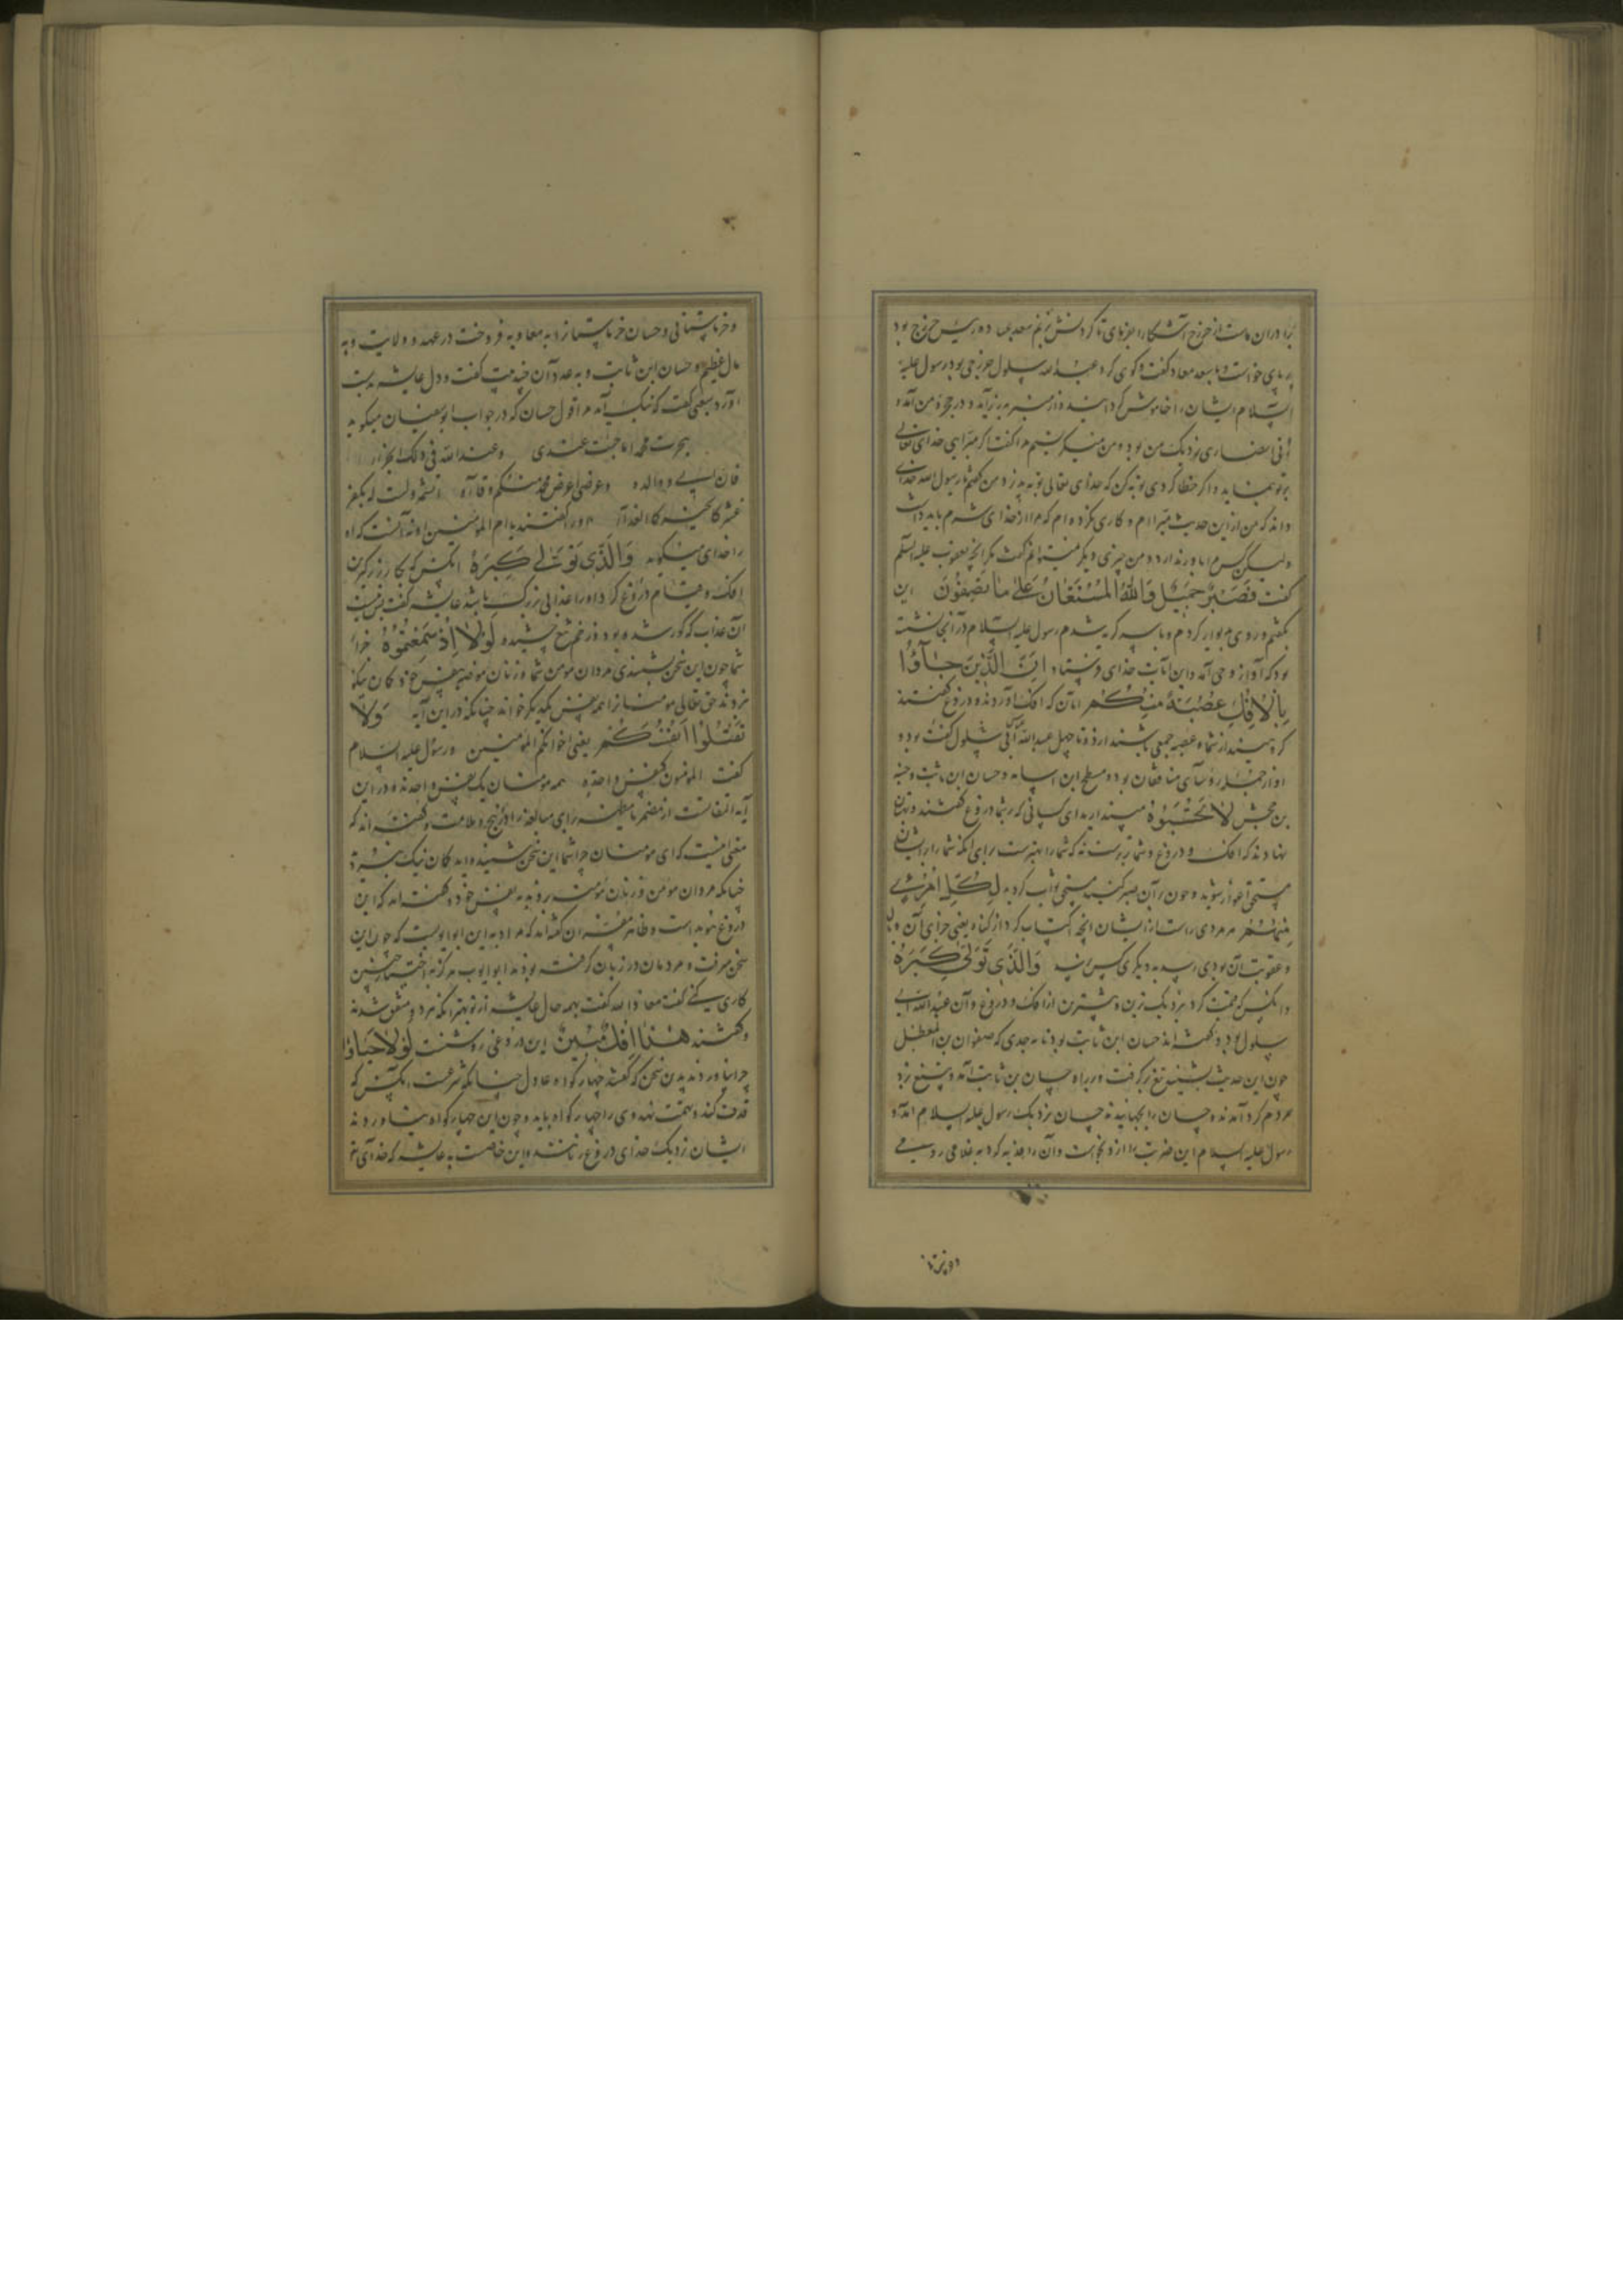 برادران ماست از خزرج آشکارا بفرمای تا گردنش بزنم سعد عباده رئیس خزرج بود
بر پای خواست و با سعد معاد گفت و گوی کرد عبدالله سلول خزرجی بود رسول علیه
السلام ایشان را خاموش گردانید و از منبر بزیر آمد و در حجره من آمد و
زنی انصاری نزدیک من بود و من میگریستم مرا گفت اگر مبرایی خدای تعالی
بر تو نماید و اگر خطا کردی توبه کن که خدای تعالی توبه پذیرد من گفتم یا رسول الله خدای
داند که من از این حدیث مبراام و کاری نکرده ام که مرا از خدای شرم باید داشت
ولیکن کس مرا باور ندارد و من چیزی دیگر نمیتوانم گفت مگر آنچه یعقوب علیه السلم
گفت فَصَبْرٌ جَمِیلٌ وَاللهُ الْمُسْتَعَانُ عَلَی مَا تَصِفُونَ این
بگفتم و روی بدیوار کردم و باسر گریه شدم رسول علیه السلام در آنجا نشسته
بود که آواز وحی آمد و این آیات خدای فرستاد اِنَّ الَّذِینَ جَاۤؤُا
بِالْاِفْکِ عُصْبَةٌ مِنْکُمْ آنان که افک آوردند و دروغ گفتند
گروهیند از شما و عصبه جمعی باشند از ده تا چهل عبدالله ابی سلول گفته بود و
او از جمله رؤسای منافقان بود و مسطح ابن اساسه و حسان ابن ثابت و حمنه
بن جحش لاَ تَحْسَبُوهُ مپندارید ای کسانی که بر شما دروغ گفتند و بهتان
نهادند که افک و دروغ و شما بترست نه که شما را بهترست برای آنکه شما را از ایشان
مستحق اعواز شوید و چون بر آن صبر کنید مستحق ثواب گردید لِکُلِّ امْرِئٍ
مِنْهُمْ هر مردی راست از ایشان آنچه اکتساب کرد از گناه یعنی جزای آن و بال
و عقوبت آن بوی رسد بدیگری کس نرسد وَالَّذِی تَوَلّی کِبْرَهُ
وانکس که محنت کرد بزدیک ترین و بیشترین از افک و دروغ و آن عبدالله ابی
سلول بود و گفته اند حسان ابن ثابت بود تا بحدی که صفوان بن المعطل
چون این حدیث بشنید تیغ برگرفت و در راه حسان بن ثابت آمد و تیغ بزد
مردم گرد آمدند و حسان را بجهانیدند حسان نزدیک رسول علیه السلام آمد و
رسول علیه السلام این ضربت را از و بخواست و آن را هدیه کرد به غلامی رومی
و خرماستانی و حسان خرماستان را به معاویه فروخت در عهد و ولایت وبه
مال عظیم و حسان ابن ثابت و بعد از آن قصیدت گفت و دل عایشه بدست
آورد شعبی گفت که نیک آمد مرا قول حسان که در جواب ابوسفیان میگوید
هجوت محمدا فاجبت عنه وعندالله فی ذلک الجزاء
فان ابی و والده وعرضی لعرض محمد منکم وقاء اتشتمه ولست له بکفو
فشرکما لخیرکما الفداء و را گفتند یا ام المؤمنین او نه آنست که او
را خدای میگوید وَالَّذِی تَوَلّی کِبْرَهُ آنکس که بکار بزرگترین
افک و عیشام دروغ کرد او را عذابی بزرگ باشد عایشه گفت پس نیست
آن عذاب که کور شده بود و زخم تیغ چشیده لَوْلاَ اِذْ سَمِعْتُمُوهُ چرا
شما چون این سخن بشنیدی مردان مومن شما و زنان مومنه بنفس خود گمان نیکو
نبردند حق تعالی مومنان را همه نفس یکدیگر خواند چنانکه در این آیه وَلاَ
تَقْتُلُوا اَنْفُسَکُمْ یعنی اخوانکم المؤمنین و رسول علیه السلام
گفت المؤمنون کنفس واحده همه مومنان یک نفس واحدند و در این
آیه التفاتست از مضمر با مظهر برای مبالغه را در توبیخ و ملامت و گفته اند که
معنی اینست که ای مومنان چرا شما این سخن شنیده اید گمان نیک نبردید
چنانکه مردان مومن و زنان مؤمنه برند به نفس خود و گفته اند که این
دروغ هویداست و ظاهر مفسران گفته اند که مراد به این ابوایوبست که چون این
سخن میرفت و مردمان در زبان گرفته بودند ابوایوب هرگز اختیار چنین
کاری کنی گفت معاذالله گفت بهمه حال عایشه از تو بهتر آنکه هر دو متفق شدند
و گفتند هذَا اِفْکٌ مُبِینٌ این دروغی روشنست لَوْلاَ جَاۤؤُا
چرا نیاوردند بدین سخن که گفتند چهار گواه عادل چنانکه شرعست آنکس که
قذف کند و تهمت نهد وی را چهار گواه باید و چون این چهار گواه نیاوردند
ایشان نزدیک خدای دروغ زنانند و این خاصست به عایشه که خدای تع